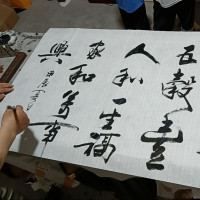 五穀豐
人和一生福
家和萬事
興